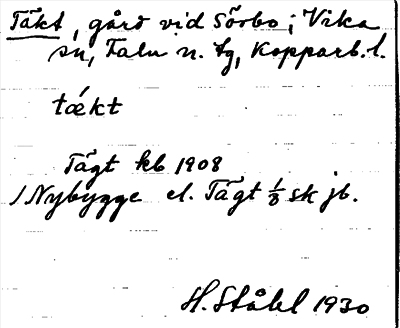 Täkt, gård vid Sörbo i Vika
sn, Falu n. tg, Kopparb. l.
tǽkt
Tägt kb 1908
1 Nybygge el. Tägt 1/8 sk jb.
H. Ståhl 1930